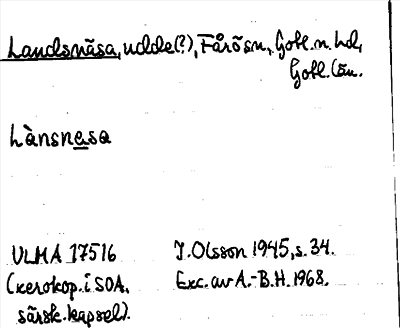 Landsnäsa, udde(?), Fårö sn, Gotl. n. hd,
Gotl. län.
Lànsnasa
ULMA 17516
(xerokop. i SOA,
särsk. kapsel).
I. Olsson 1945, s. 34.
Exc. av A.-B.H. 1968.